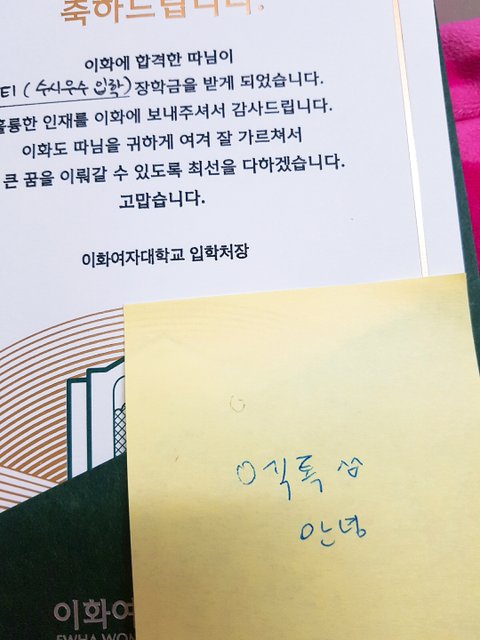 축하드립니다.
이화에 합격한 따님이
(수시우수 입학) 장학금을 받게 되었습니다.
훌륭한 인재를 이화에 보내주셔서 감사드립니다.
이화도 따님을 귀하게 여겨 잘 가르쳐서
큰 꿈을 이뤄갈 수 있도록 최선을 다하겠습니다.
고맙습니다.
이화여자대학교 입학처장
안녕
이화여
EWHA WOM